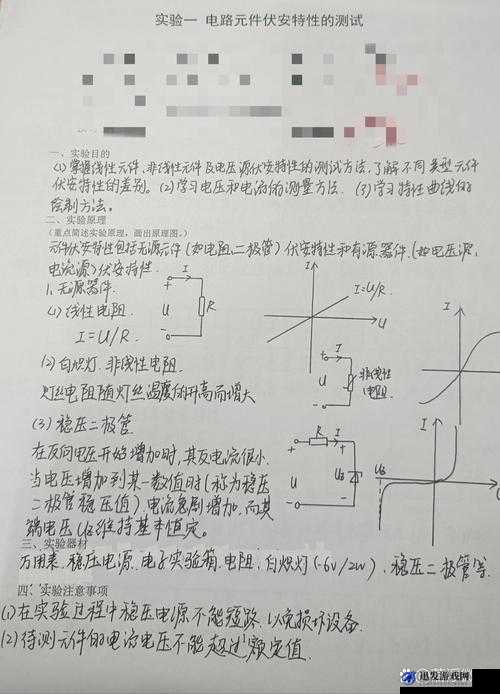 实验一 电路元件伏安特性的测试
一、实验目的
(1)掌握线性元件、非线性元件及电压源伏安特性的测试方法,了解不同类型元件
伏安特性的差别。(2)学习电压和电流的测量方法。(3)学习特性曲线的
绘制方法。
二、实验原理
(重点简述实验原理,画出原理图。)
元件伏安特性包括无源元件(如电阻、二极管)伏安特性和有源器件(如电压源,
电流源)伏安特性.
1.无源器件.
(1)线性电阻.
I=U/R
+ I U R -
I I=U/R U
(2)白炽灯.非线性电阻.
灯丝电阻随灯丝温度的升高而增大
+ I U - 非线性
电阻.
I
(3)稳压二极管
在反向电压开始增加时,其反电流很小.
当电压增加到某一数值时(称为稳压
二极管稳压值),电流急剧增加,而其
端电压Uz维持基本恒定。
+ R I U -
I
三、实验器材
万用表、稳压电源、电子实验箱、电阻、白炽灯(-6V/2W)、稳压二极管等.
四、实验注意事项
(1)在实验过程中稳压电源不能短路,以免损坏设备.
(2)待测元件的电流电压不能超过额定值.
迅发游戏网